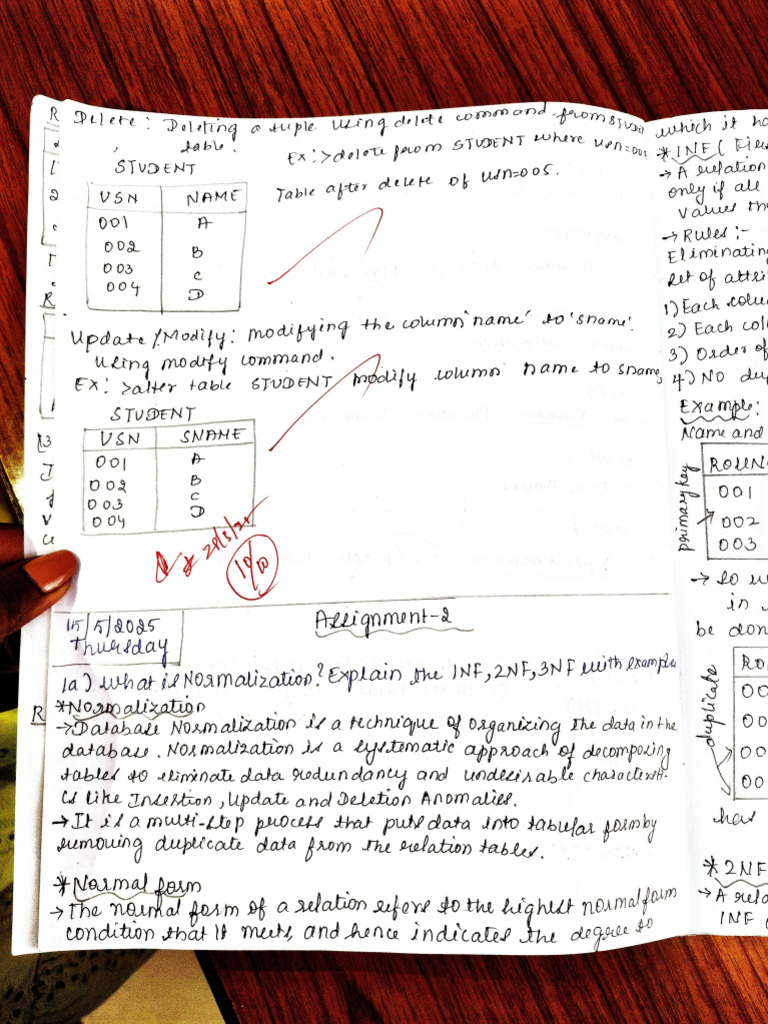 Delete: Deleting a tuple using delete command from STUDENT
table.
Ex:>delete from STUDENT where usn=005
STUDENT
Table after delete of usn=005.
USN NAME
001 A
002 B
003 C
004 D
Update/Modify: modifying the column 'name' to 'sname'.
using modify command.
Ex: >alter table STUDENT modify column name to sname
STUDENT
USN SNAME
001 A
002 B
003 C
004 D
10/10
15/5/2025
Thursday
Assignment-2
1a) What is Normalization? Explain the 1NF, 2NF, 3NF with example
*Normalization
→Database Normalization is a technique of organizing the data in the
database. Normalization is a systematic approach of decomposing
tables to eliminate data redundancy and undesirable characterist-
cs like Insertion, Update and Deletion Anomalies.
→It is a multi-step process that puts data into tabular form by
removing duplicate data from the relation tables.
*Normal form
→The normal form of a relation refers to the highest normal form
condition that it meets, and hence indicates the degree to
which it ha
*1NF (
→ A relation
only if all
values th
→ Rules:-
Eliminating
set of attri
1) Each colu
2) Each col
3) Order of
4) NO dup
Example:
Name and
primary key
ROLLNO
001
002
003
→ So
in
be don
duplicate
RO
00
00
00
00
has
*2NF
→A rela
1NF